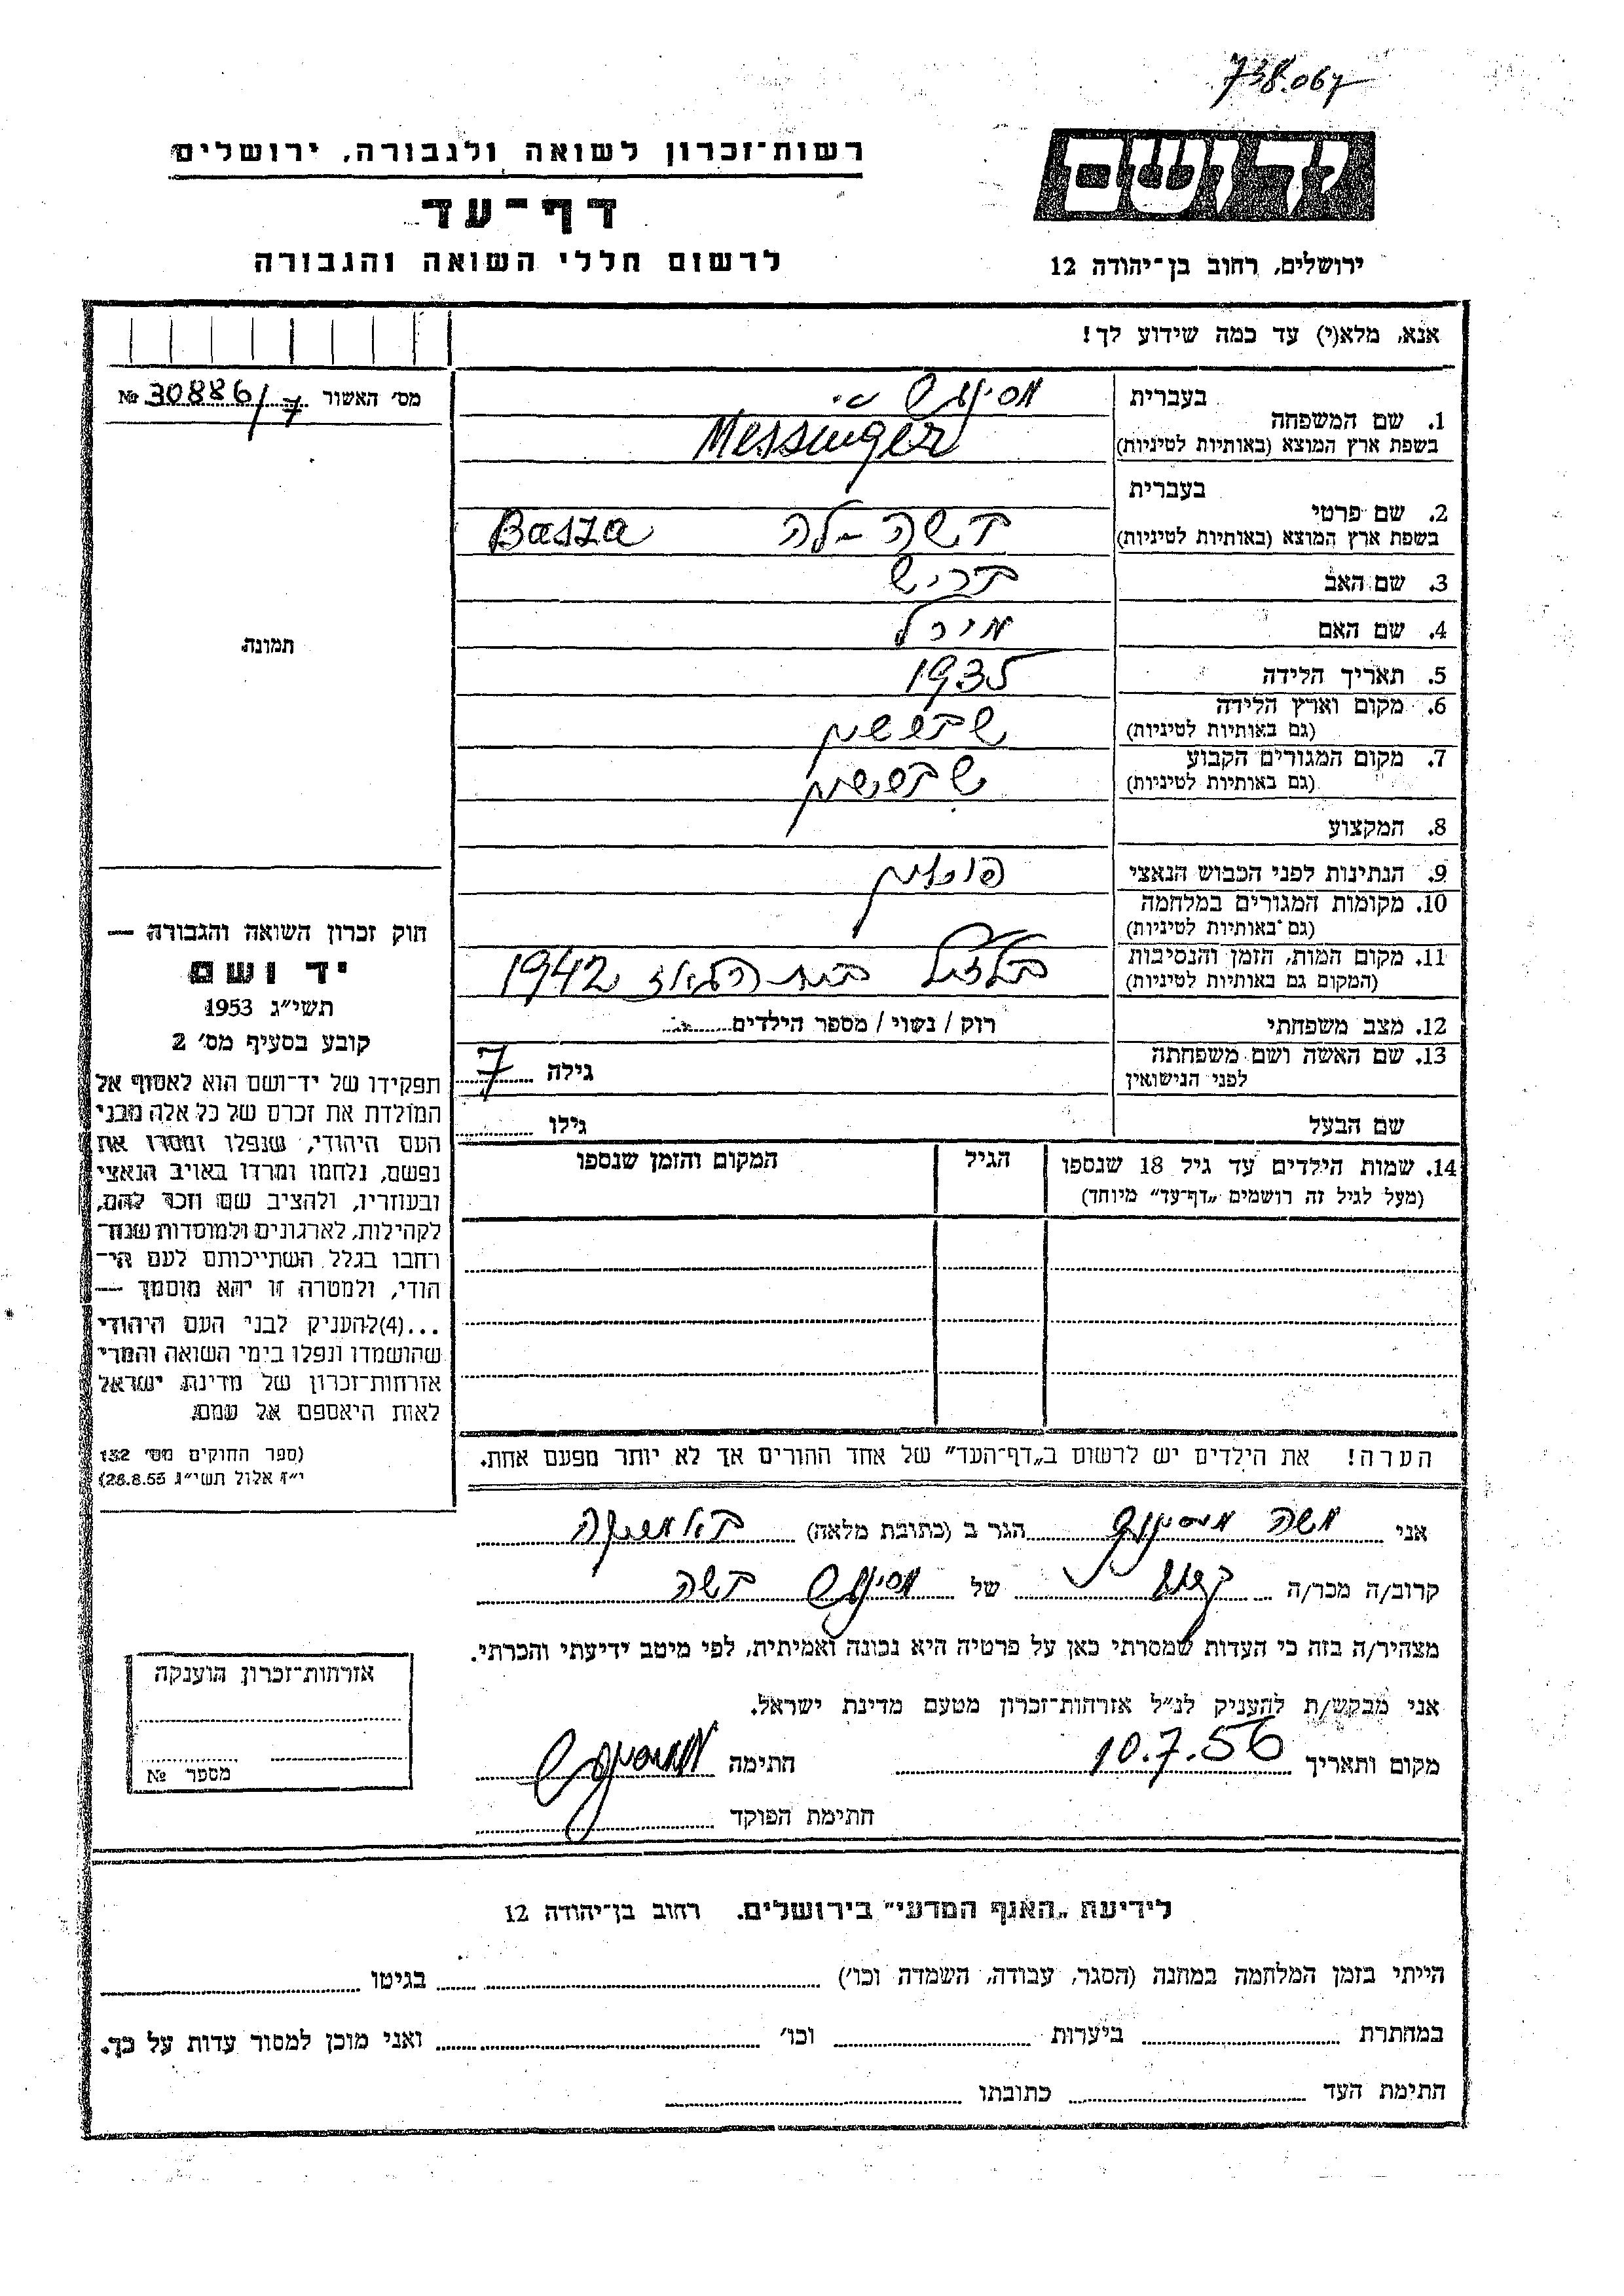 738.067
רשות־זכרון לשואה ולגבורה, ירושלים
דף־עד
לרשום חללי השואה והגבורה
יד ושם
ירושלים, רחוב בן־יהודה 12
אנא, מלא(י) עד כמה שידוע לך!
מס׳ האשור № 30886/7
תמונה
1. שם המשפחה
בעברית
בשפת ארץ המוצא (באותיות לטיניות)
Messinger
2. שם פרטי
בעברית
בשפת ארץ המוצא (באותיות לטיניות)
בשה Basza
3. שם האב
בריש
4. שם האם
מירל
5. תאריך הלידה
1935
6. מקום וארץ הלידה
(גם באותיות לטיניות)
7. מקום המגורים הקבוע
(גם באותיות לטיניות)
8. המקצוע
9. הנתינות לפני הכבוש הנאצי
פולנית
10. מקומות המגורים במלחמה
(גם באותיות לטיניות)
11. מקום המות, הזמן והנסיבות
(המקום גם באותיות לטיניות)
1942
12. מצב משפחתי
רוק / נשוי / מספר הילדים
13. שם האשה ושם משפחתה
לפני הנישואין
גילה 7
שם הבעל
גילו
14. שמות הילדים עד גיל 18 שנספו
(מעל לגיל זה רושמים „דף־עד״ מיוחד)
הגיל
המקום והזמן שנספו
חוק זכרון השואה והגבורה —
יד ושם
תשי״ג 1953
קובע בסעיף מס׳ 2
תפקידו של יד־ושם הוא לאסוף אל
המולדת את זכרם של כל אלה מבני
העם היהודי, שנפלו ומסרו את
נפשם, נלחמו ומרדו באויב הנאצי
ובעוזריו, ולהציב שם וזכר להם,
לקהילות, לארגונים ולמוסדות שנח־
רחבו בגלל השתייכותם לעם הי־
הודי, ולמטרה זו יהא מוסמך —
...(4)להעניק לבני העם היהודי
שהושמדו ונפלו בימי השואה והמרי
אזרחות־זכרון של מדינת ישראל
לאות היאספם אל עמם.
(ספר החוקים מס׳ 132
י״ז אלול תשי״ג 28.8.53)
הערה! את הילדים יש לרשום ב„דף־העד״ של אחד ההורים אך לא יותר מפעם אחת.
אני משה הגר ב (כתובת מלאה)
קרוב/ה מכר/ה של בשה
מצהיר/ה בזה כי העדות שמסרתי כאן על פרטיה היא נכונה ואמיתית, לפי מיטב ידיעתי והכרתי.
אני מבקש/ת להעניק לנ״ל אזרחות־זכרון מטעם מדינת ישראל.
מקום ותאריך 10.7.56 חתימה
חתימת הפוקד
אזרחות־זכרון הוענקה
מספר №
לידיעת „האגף המדעי״ בירושלים. רחוב בן־יהודה 12
הייתי בזמן המלחמה במחנה (הסגר, עבודה, השמדה וכו׳) בגיטו
במחתרת ביערות וכו׳ ואני מוכן למסור עדות על כך.
חתימת העד כתובתו